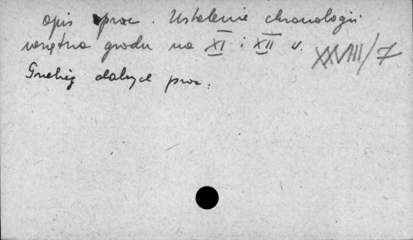 opis prac. Ustalenie chronologii
wnętrza grodu na XI i XII w.
XXVIII/7
dalszych prac.